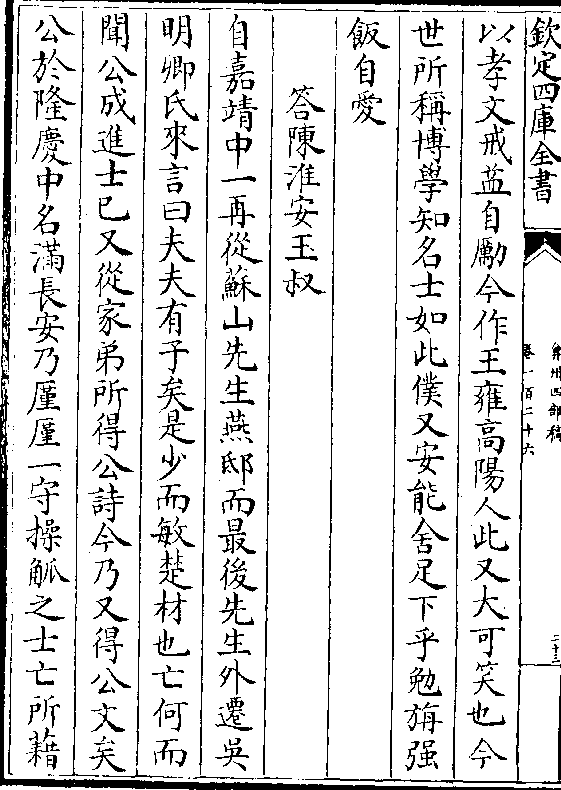 欽定四庫全書
弇州四部稿
卷一百二十六
二十三
以孝文戒葢自勵今作王雍高陽人此又大可笑也今
世所稱博學知名士如此僕又安能舍足下乎勉旃强
飯自愛
答陳淮安玉叔
自嘉靖中一再從蘇山先生燕邸而最後先生外遷吳
明卿氏來言曰夫夫有子矣是少而敏楚材也亡何而
聞公成進士已又從家弟所得公詩今乃又得公文矣
公於隆慶中名滿長安乃厪厪一守操觚之士亡所藉